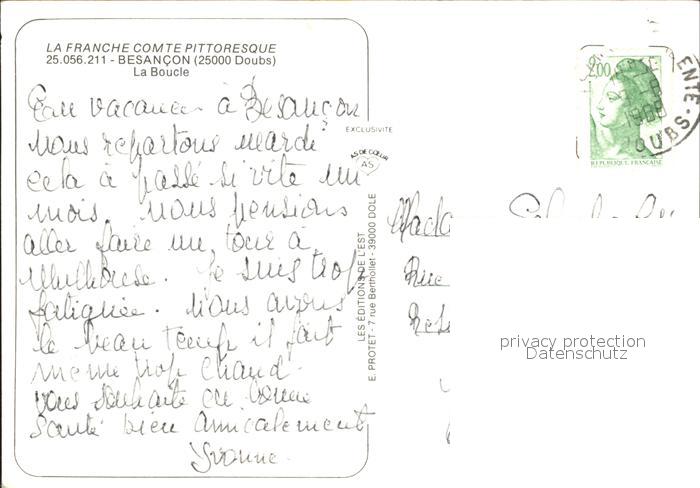 LA FRANCHE COMTE PITTORESQUE
25.056.211 - BESANÇON (25000 Doubs)
La Boucle
En vacances à Besançon
nous repartons mardi
cela à passé si vite un
mois. nous pensions
aller faire un tour à
Mulhouse. Je suis trop
fatiguée. Nous avons
le beau temps il fait
même trop chaud.
vous souhaite en bonne
santé bien amicalement
Yvonne.
EXCLUSIVITE
AS DE CŒUR
AS
LES ÉDITIONS DE L'EST
E. PROTET - 7 rue Berthollet - 39000 DOLE
2,00
RÉPUBLIQUE FRANÇAISE
ENTE
DOUBS
Mada
Rue
privacy protection
Datenschutz